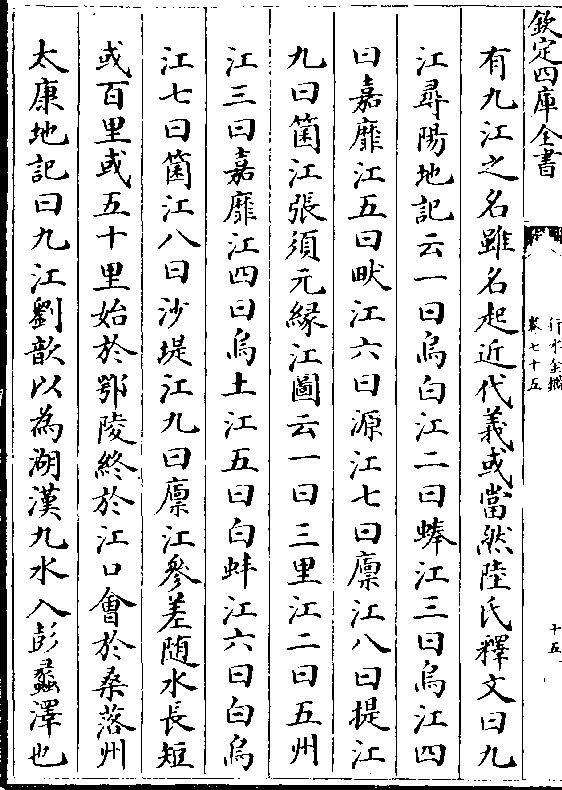 欽定四庫全書
行水金鑑
卷七十五
十五
有九江之名雖名起近代義或當然陸氏釋文曰九
江尋陽地記云一曰烏白江二曰蜯江三曰烏江四
曰嘉靡江五曰畎江六曰源江七曰廪江八曰提江
九曰箘江張須元緣江圖云一曰三里江二曰五州
江三曰嘉靡江四曰烏土江五曰白蚌江六曰白烏
江七曰箘江八曰沙堤江九曰廪江參差随水長短
或百里或五十里始於鄂陵終於江口會於桑落州
太康地記曰九江劉歆以為湖漢九水入彭蠡澤也